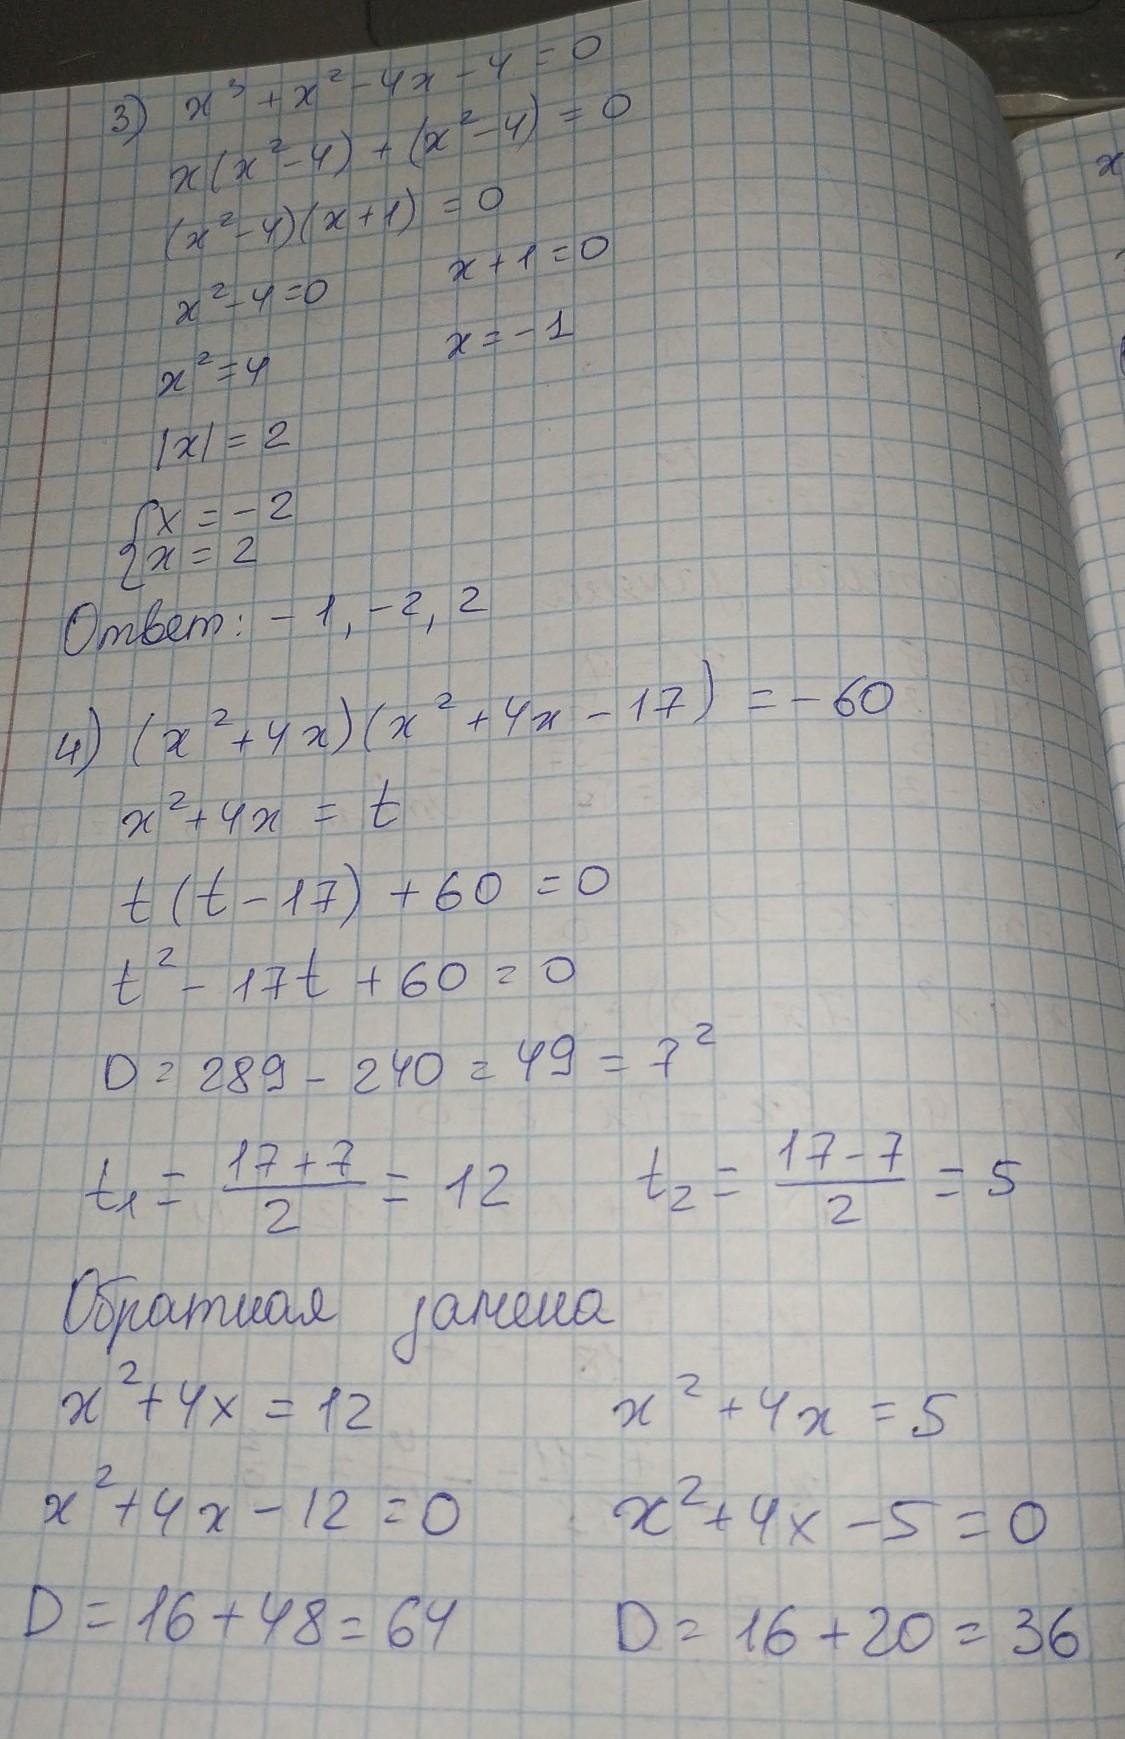 3) x³ + x² - 4x - 4 = 0
x(x² - 4) + (x² - 4) = 0
(x² - 4)(x + 1) = 0
x² - 4 = 0 x + 1 = 0
x² = 4 x = -1
|x| = 2
{x = -2
x = 2
Ответ: -1, -2, 2
4) (x² + 4x)(x² + 4x - 17) = -60
x² + 4x = t
t(t - 17) + 60 = 0
t² - 17t + 60 = 0
D = 289 - 240 = 49 = 7²
t₁ = (17 + 7)/2 = 12 t₂ = (17 - 7)/2 = 5
Обратная замена
x² + 4x = 12 x² + 4x = 5
x² + 4x - 12 = 0 x² + 4x - 5 = 0
D = 16 + 48 = 64 D = 16 + 20 = 36